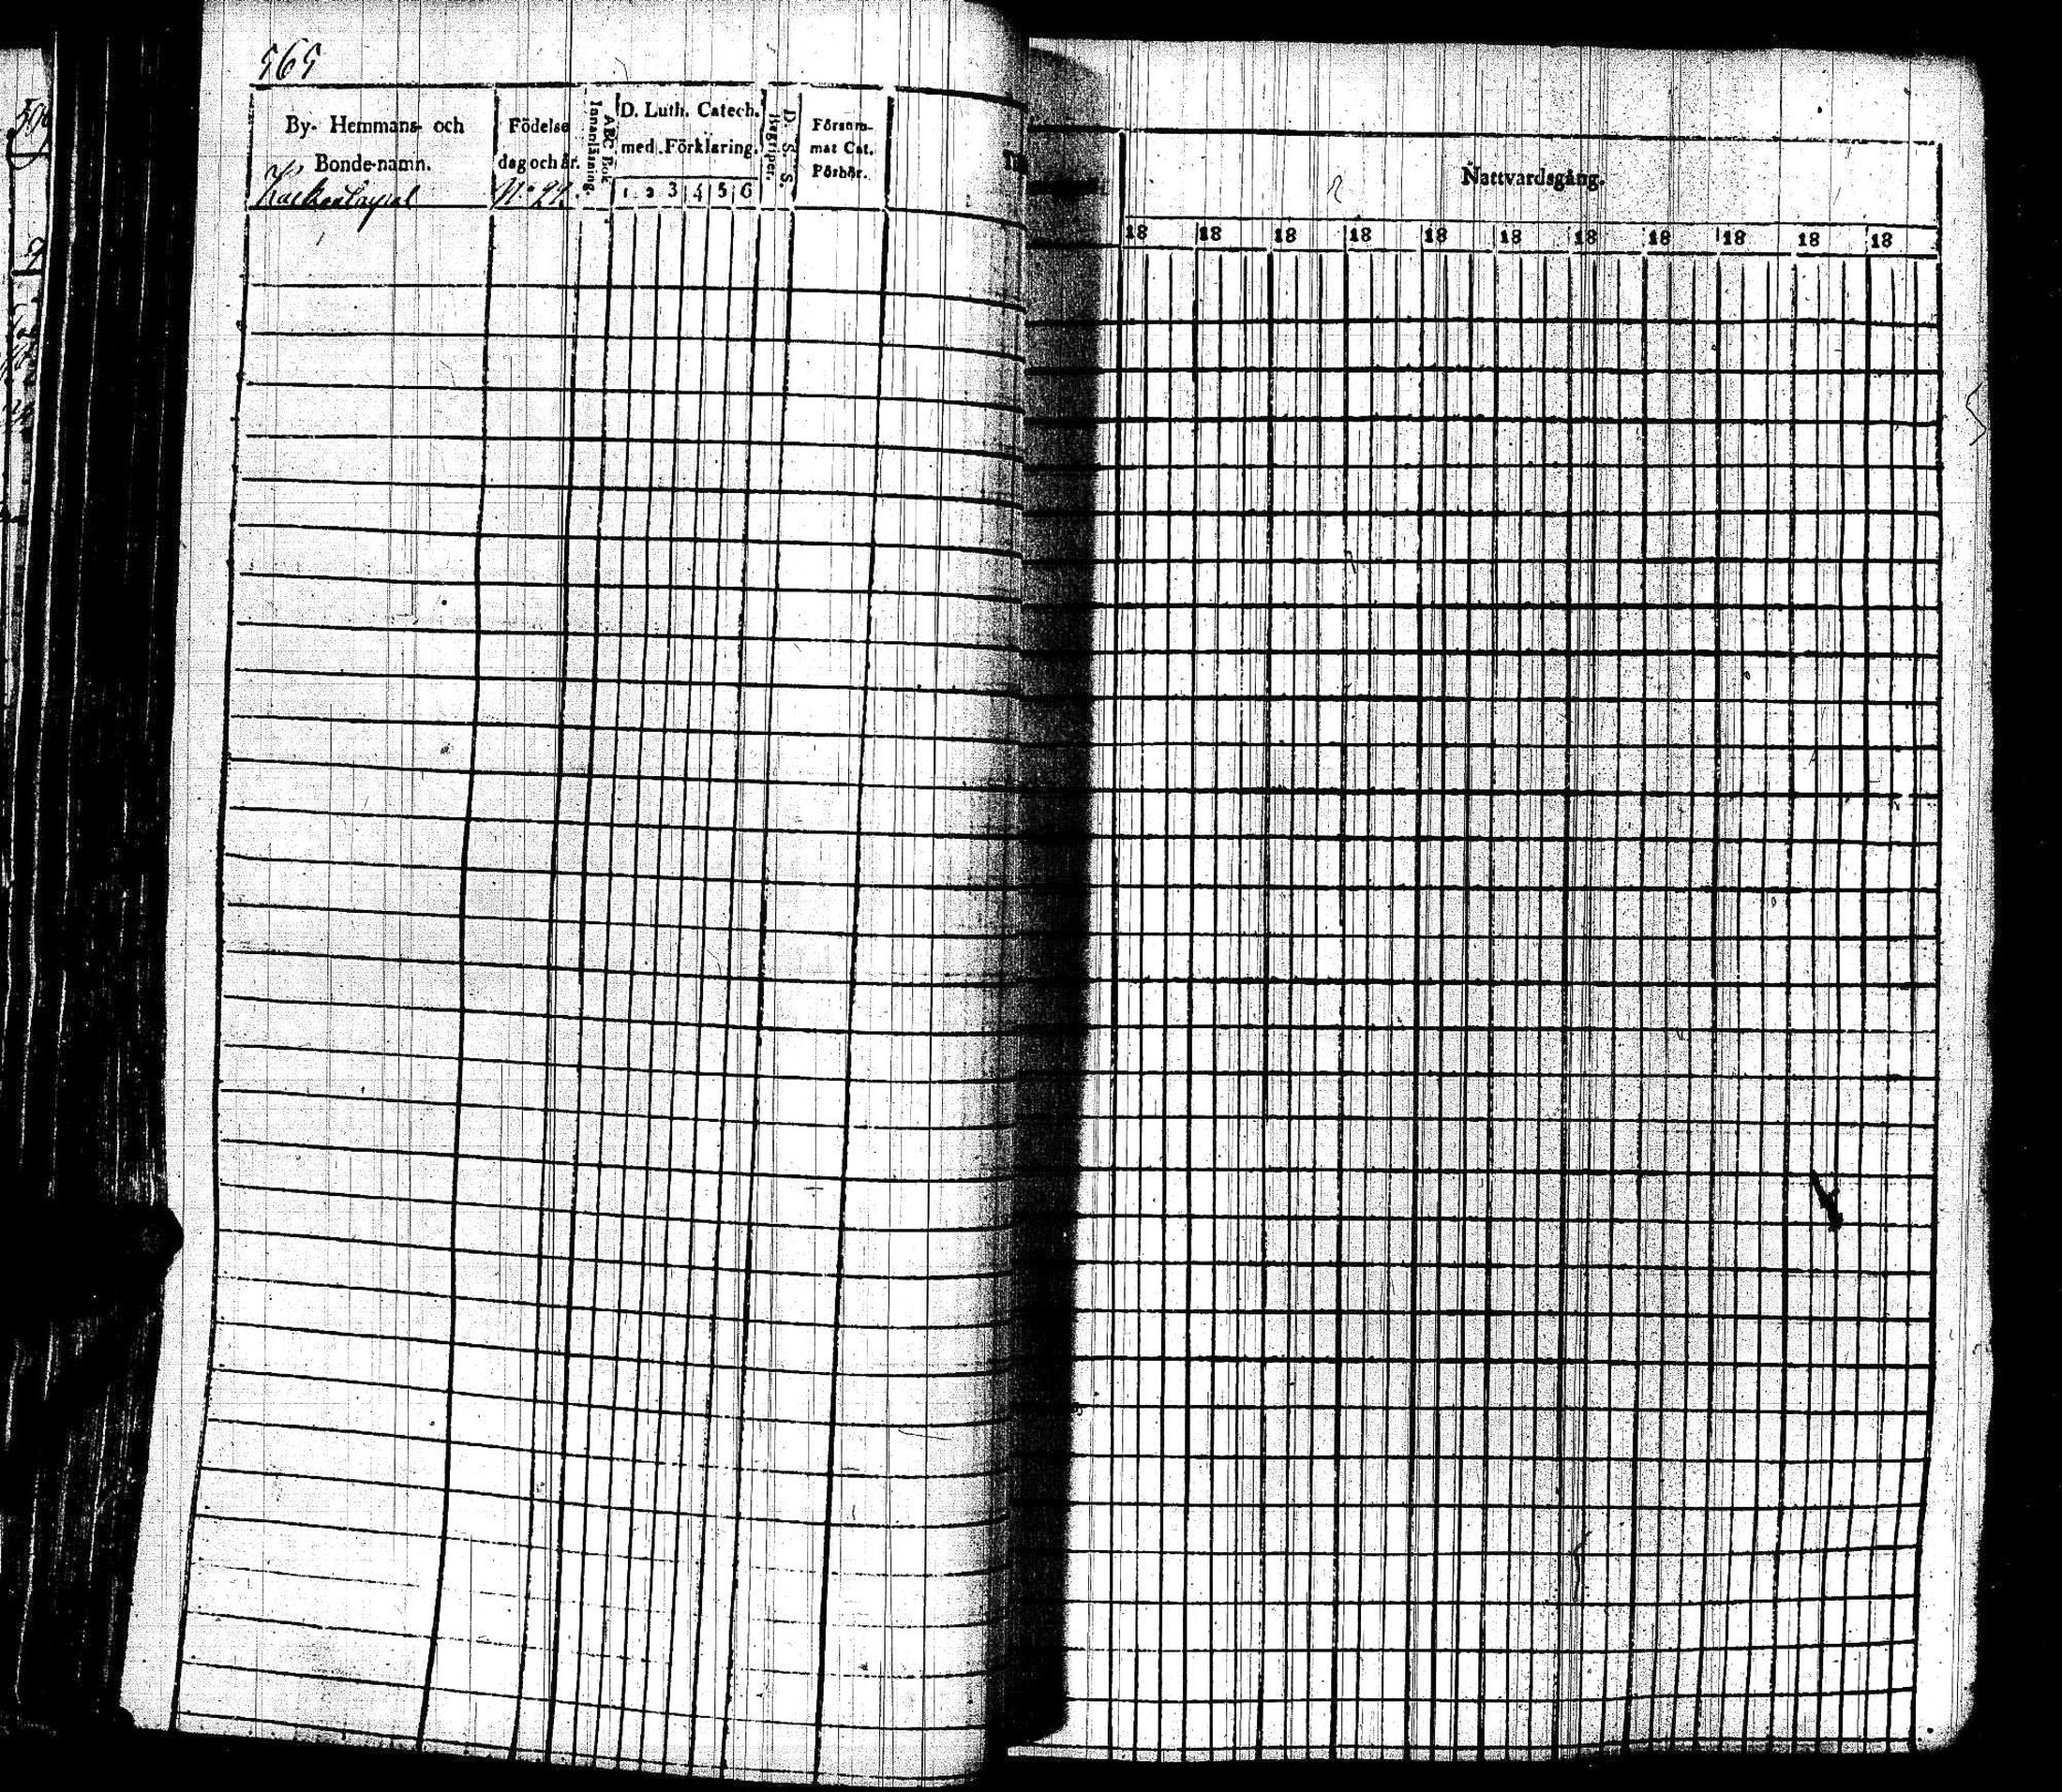 565
By- Hemmans- och
Bonde-namn.
Födelse
dag och år.
N:o 27.
Innanläsning.
A B C Bok
D. Luth. Catech.
med Förklaring.
1 2 3 4 5 6
D. S. S.
Begriper.
Försum-
mat Cat.
Förhör.
Nattvardsgång.
18 18 18 18 18 18 18 18 18 18 18